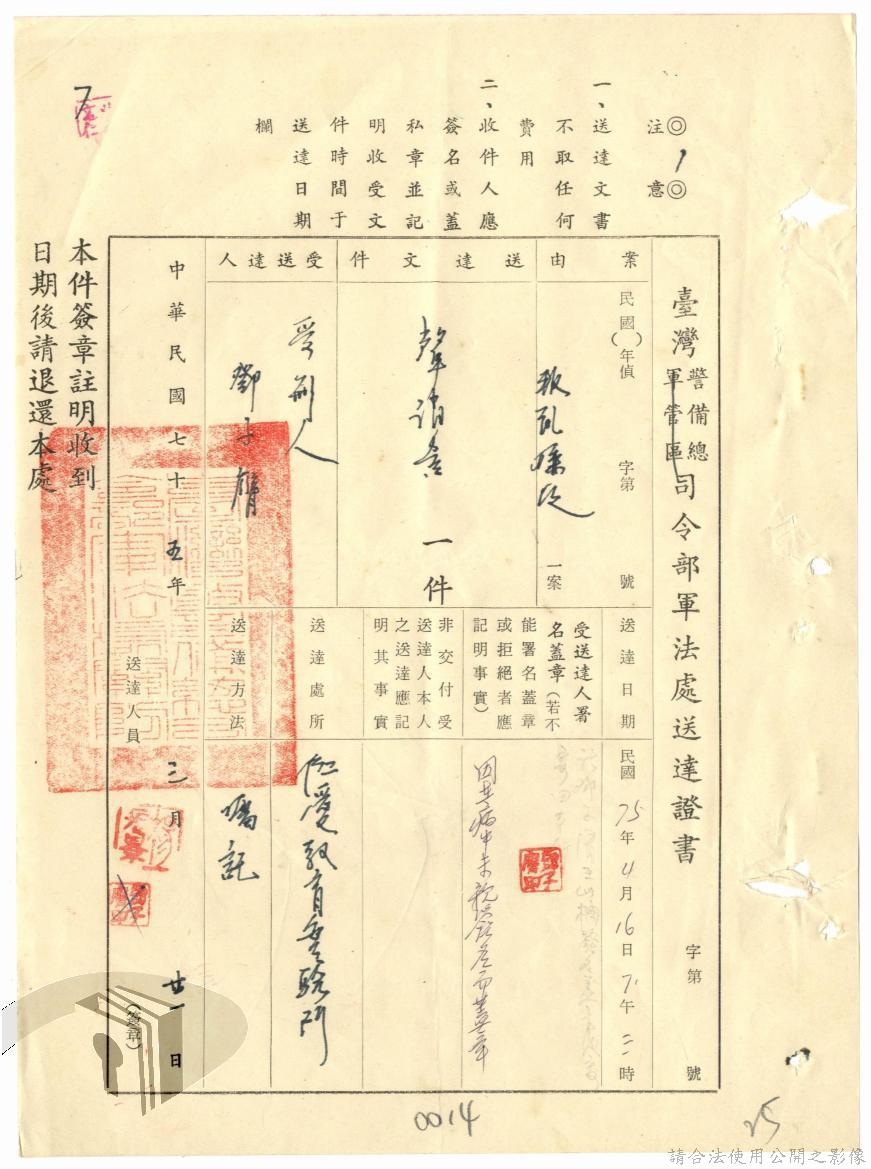 ◎1◎
注意
一、送達文書
不取任何
費用
二、收件人應
簽名或蓋
私章並記
明收受文
件時間于
送達日期
欄
臺灣警備總軍管區司令部軍法處送達證書
字第 號
案由
民國( )年偵 字第 號
叛亂 一案
送達文件
聲請書 一件
受送達人
受刑人
鄧
送達日期
民國75年4月16日下午三時
受送達人署
名蓋章(若不
能署名蓋章
或拒絕者應
記明事實)
因其病中未 而蓋章
非交付受
送達人本人
之送達應記
明其事實
送達處所
仁愛教育實驗所
送達方法
囑託
中華民國七十五年三月廿一日
送達人員
(簽章)
本件簽章註明收到
日期後請退還本處
7
0014
25
請合法使用公開之影像